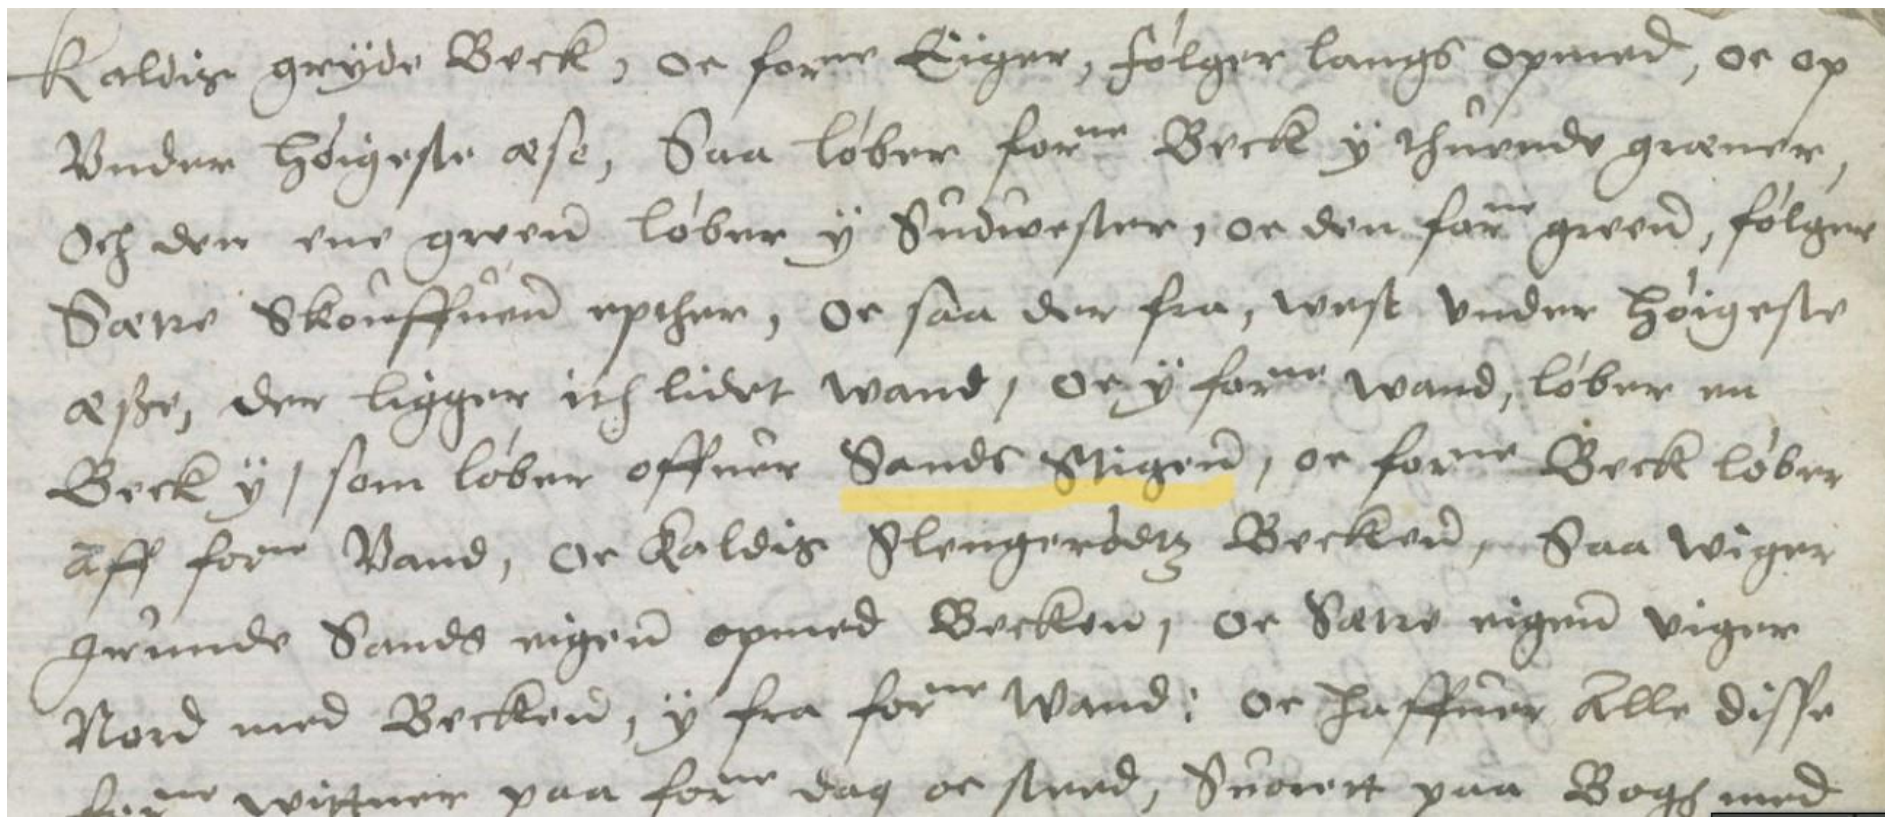 Kaldis gryde Beck, oc forne Eiger, følger langs opmed, oc op
Vnder høigeste æse, Saa løber forne Beck ÿ thuende græner,
Och den ene green løber ÿ Sudwester, oc den forne green, følger
Sætre Skouffuen epther, oc saa der fra, west vnder høigeste
æsse, der ligger ith lidet wand, oc ÿ forne wand, løber en
Beck ÿ, som løber offuer Sands Stigen, oc forne Beck løber
Aff forne Vand, oc Kaldis Slengerødtz Becken, Saa wiger
grunde Sands eigen opmed Becken, oc Sætre eigen viger
Nord med Becken, ÿ fra forne Wand: oc haffuer Alle disse
forne wittner paa forne dag oc sted, Suorett paa Bogh med